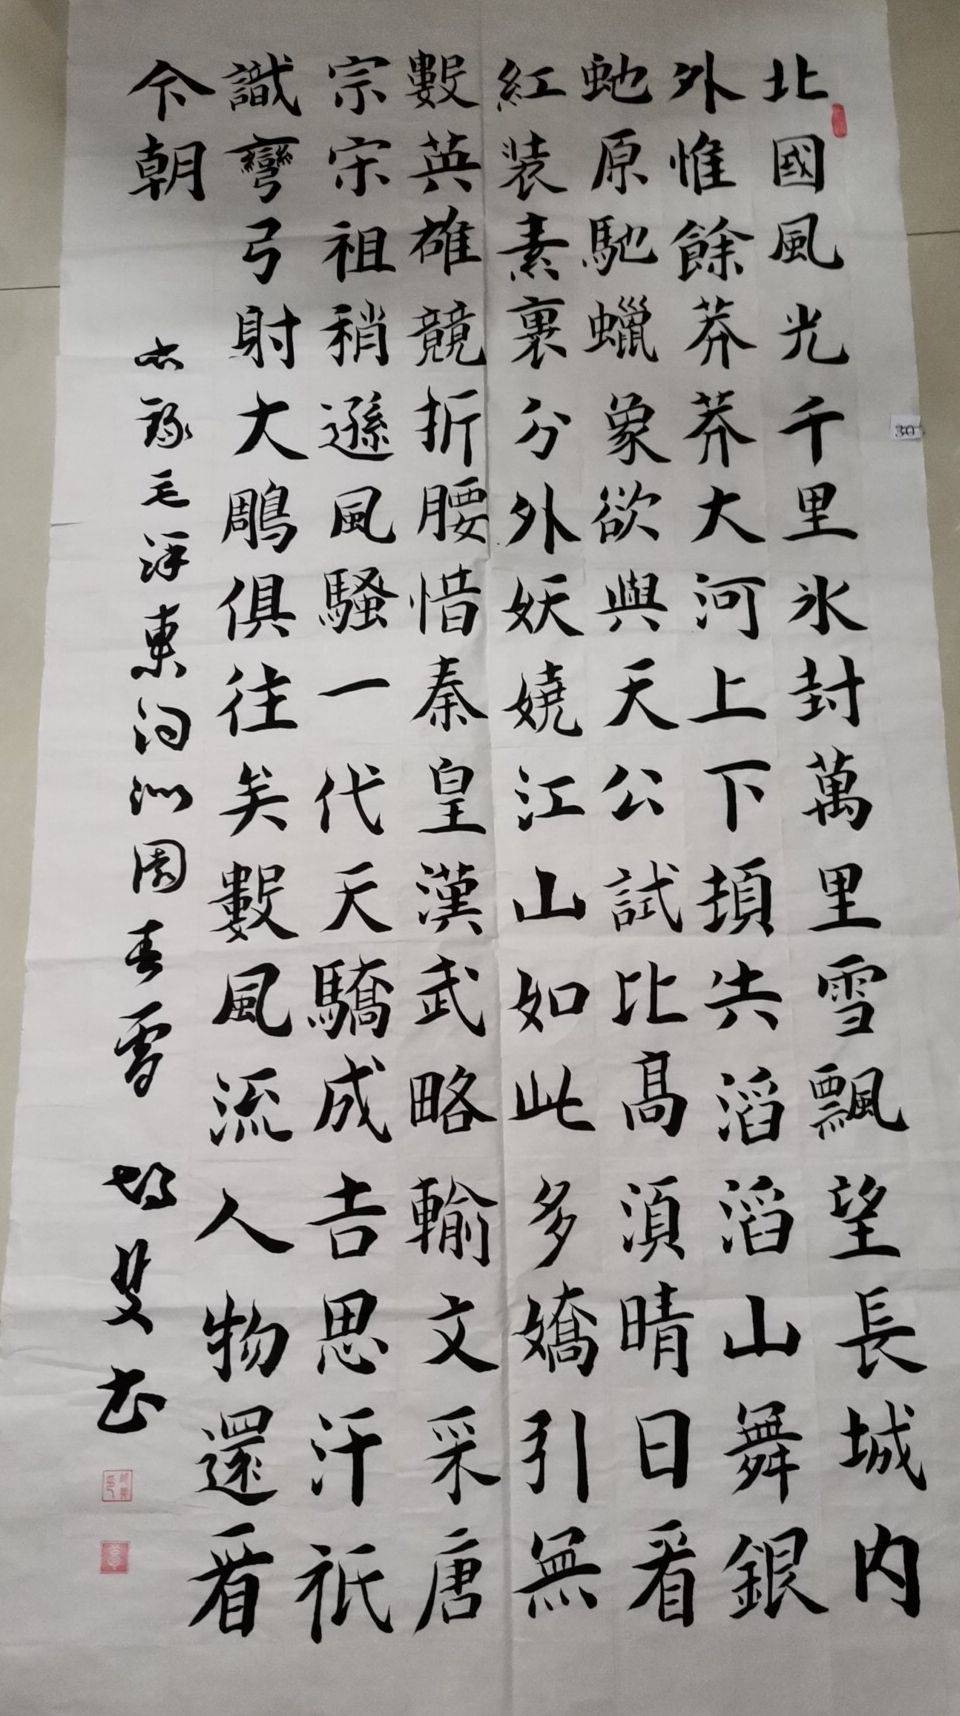 北國風光千里氷封萬里雪飄望長城内
外惟餘莽莽大河上下頓失滔滔山舞銀
虵原馳蠟象欲與天公試比髙湏晴日看
紅装素裹分外妖嬈江山如此多嬌引無
數英雄競折腰惜秦皇漢武略輸文采唐
宗宋祖稍遜風騷一代天驕成吉思汗祇
識彎弓射大鵰俱往矣數風流人物還看
今朝
右録毛泽東词沁園春雪 书
30